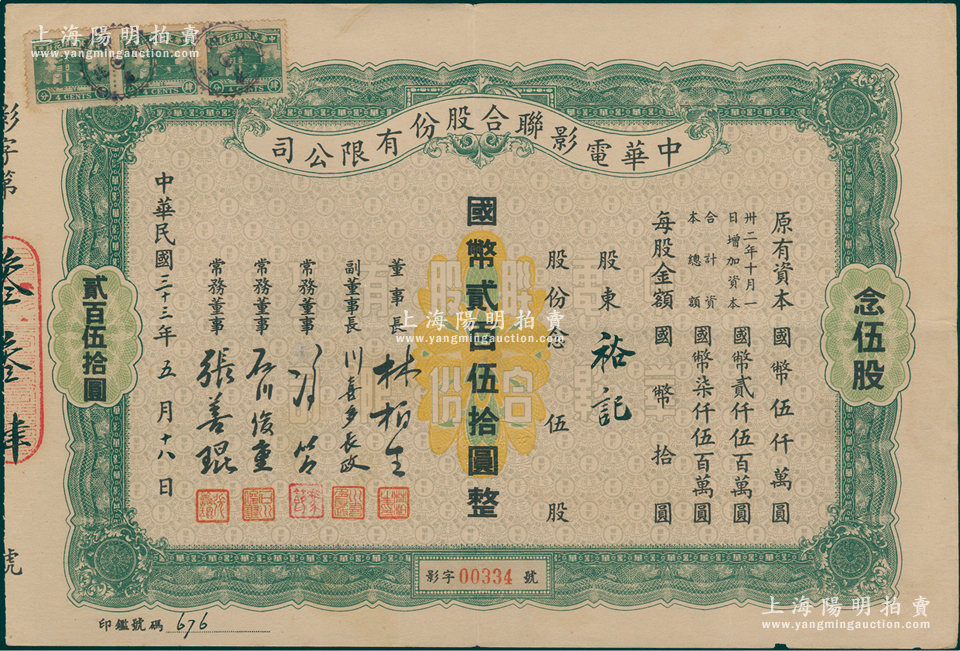 中華電影聯合股份有限公司
原有資本國幣伍仟萬圓
卅二年十月一日增加資本國幣貳仟伍百萬圓
合計資本總額國幣柒仟伍百萬圓
每股金額國幣拾圓
股東裕記
股份念伍股
國幣貳百伍拾圓整
董事長林柏生
副董事長川喜多長政
常務董事馮節
常務董事石川俊重
常務董事張善琨
中華民國三十三年五月十八日
念伍股
貳百伍拾圓
影字00334號
印鑑號碼676
影字第
叁叁肆
號
4 CENTS
4 CENTS
4 CENTS
上海陽明拍賣
www.yangmingauction.com
上海陽明拍賣
www.yangmingauction.com
上海陽明拍賣
www.yangmingauction.com